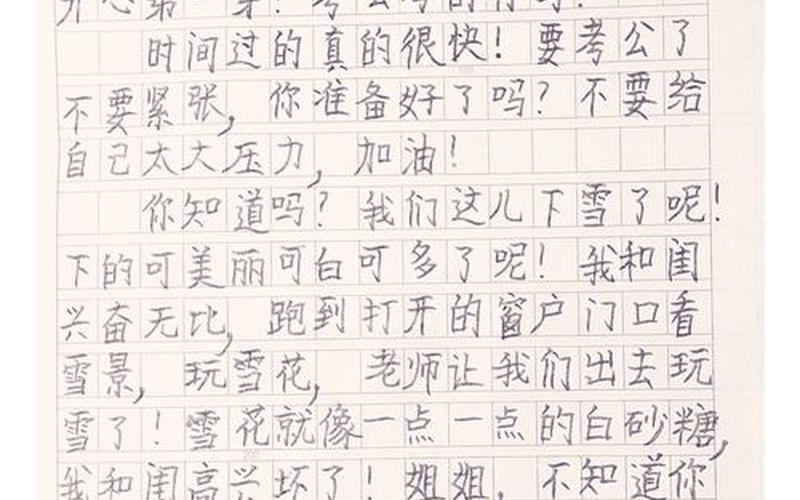 时间过的真的很快！要考公了
不要紧张，你准备好了吗？不要给
自己太大压力，加油！
你知道吗？我们这儿下雪了呢！
下的可美丽可白可多了呢！我和闺
兴奋无比，跑到打开的窗户门口看
雪景，玩雪花，老师让我们出去玩
雪了！雪花就像一点一点的白砂糖，
我和闺高兴坏了！姐姐，不知道你